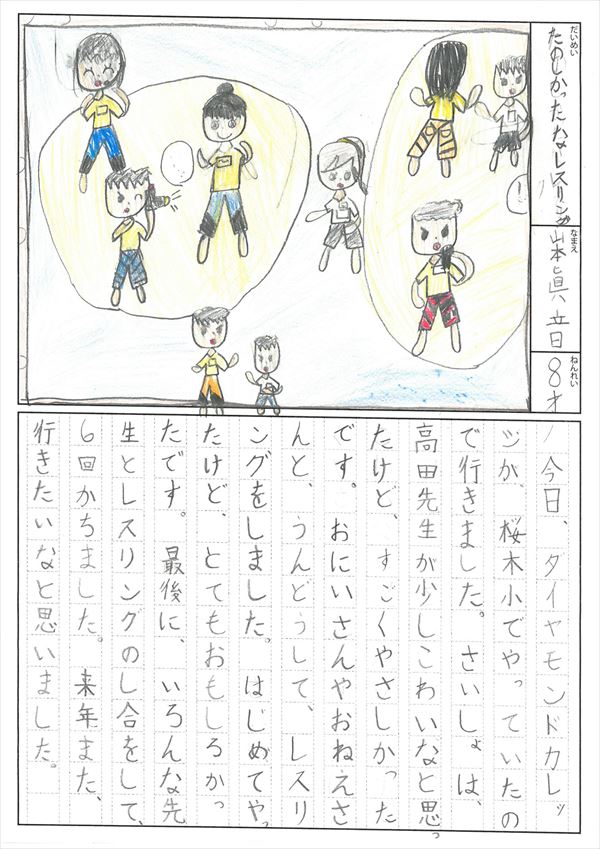 だいめい
たのしかったなレスリング
なまえ
ねんれい
8才
今日、ダイヤモンドカレッ
ツが、桜木小でやっていたの
で行きました。さいしょは、
高田先生が少しこわいなと思っ
たけど、すごくやさしかった
です。おにいさんやおねえさ
んと、うんどうして、レスリ
ングをしました。はじめてやっ
たけど、とてもおもしろかっ
たです。最後に、いろんな先
生とレスリングのし合をして、
6回かちました。来年また、
行きたいなと思いました。